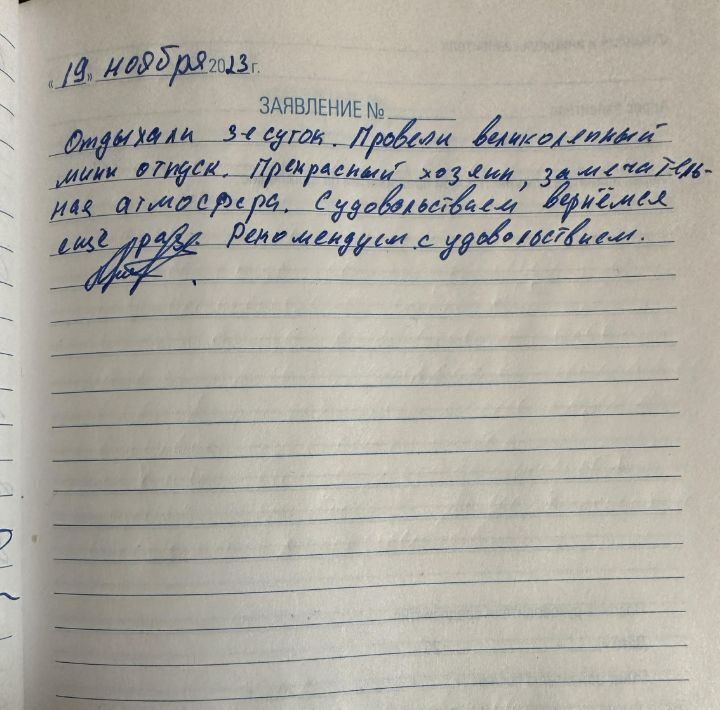 «19» ноября 2023г.
ЗАЯВЛЕНИЕ №
Отдыхали 3-е суток. Провели великолепный
мини отпуск. Прекрасный хозяин, замечатель-
ная атмосфера. С удовольствием вернёмся
ещё раз. Рекомендуем с удовольствием.